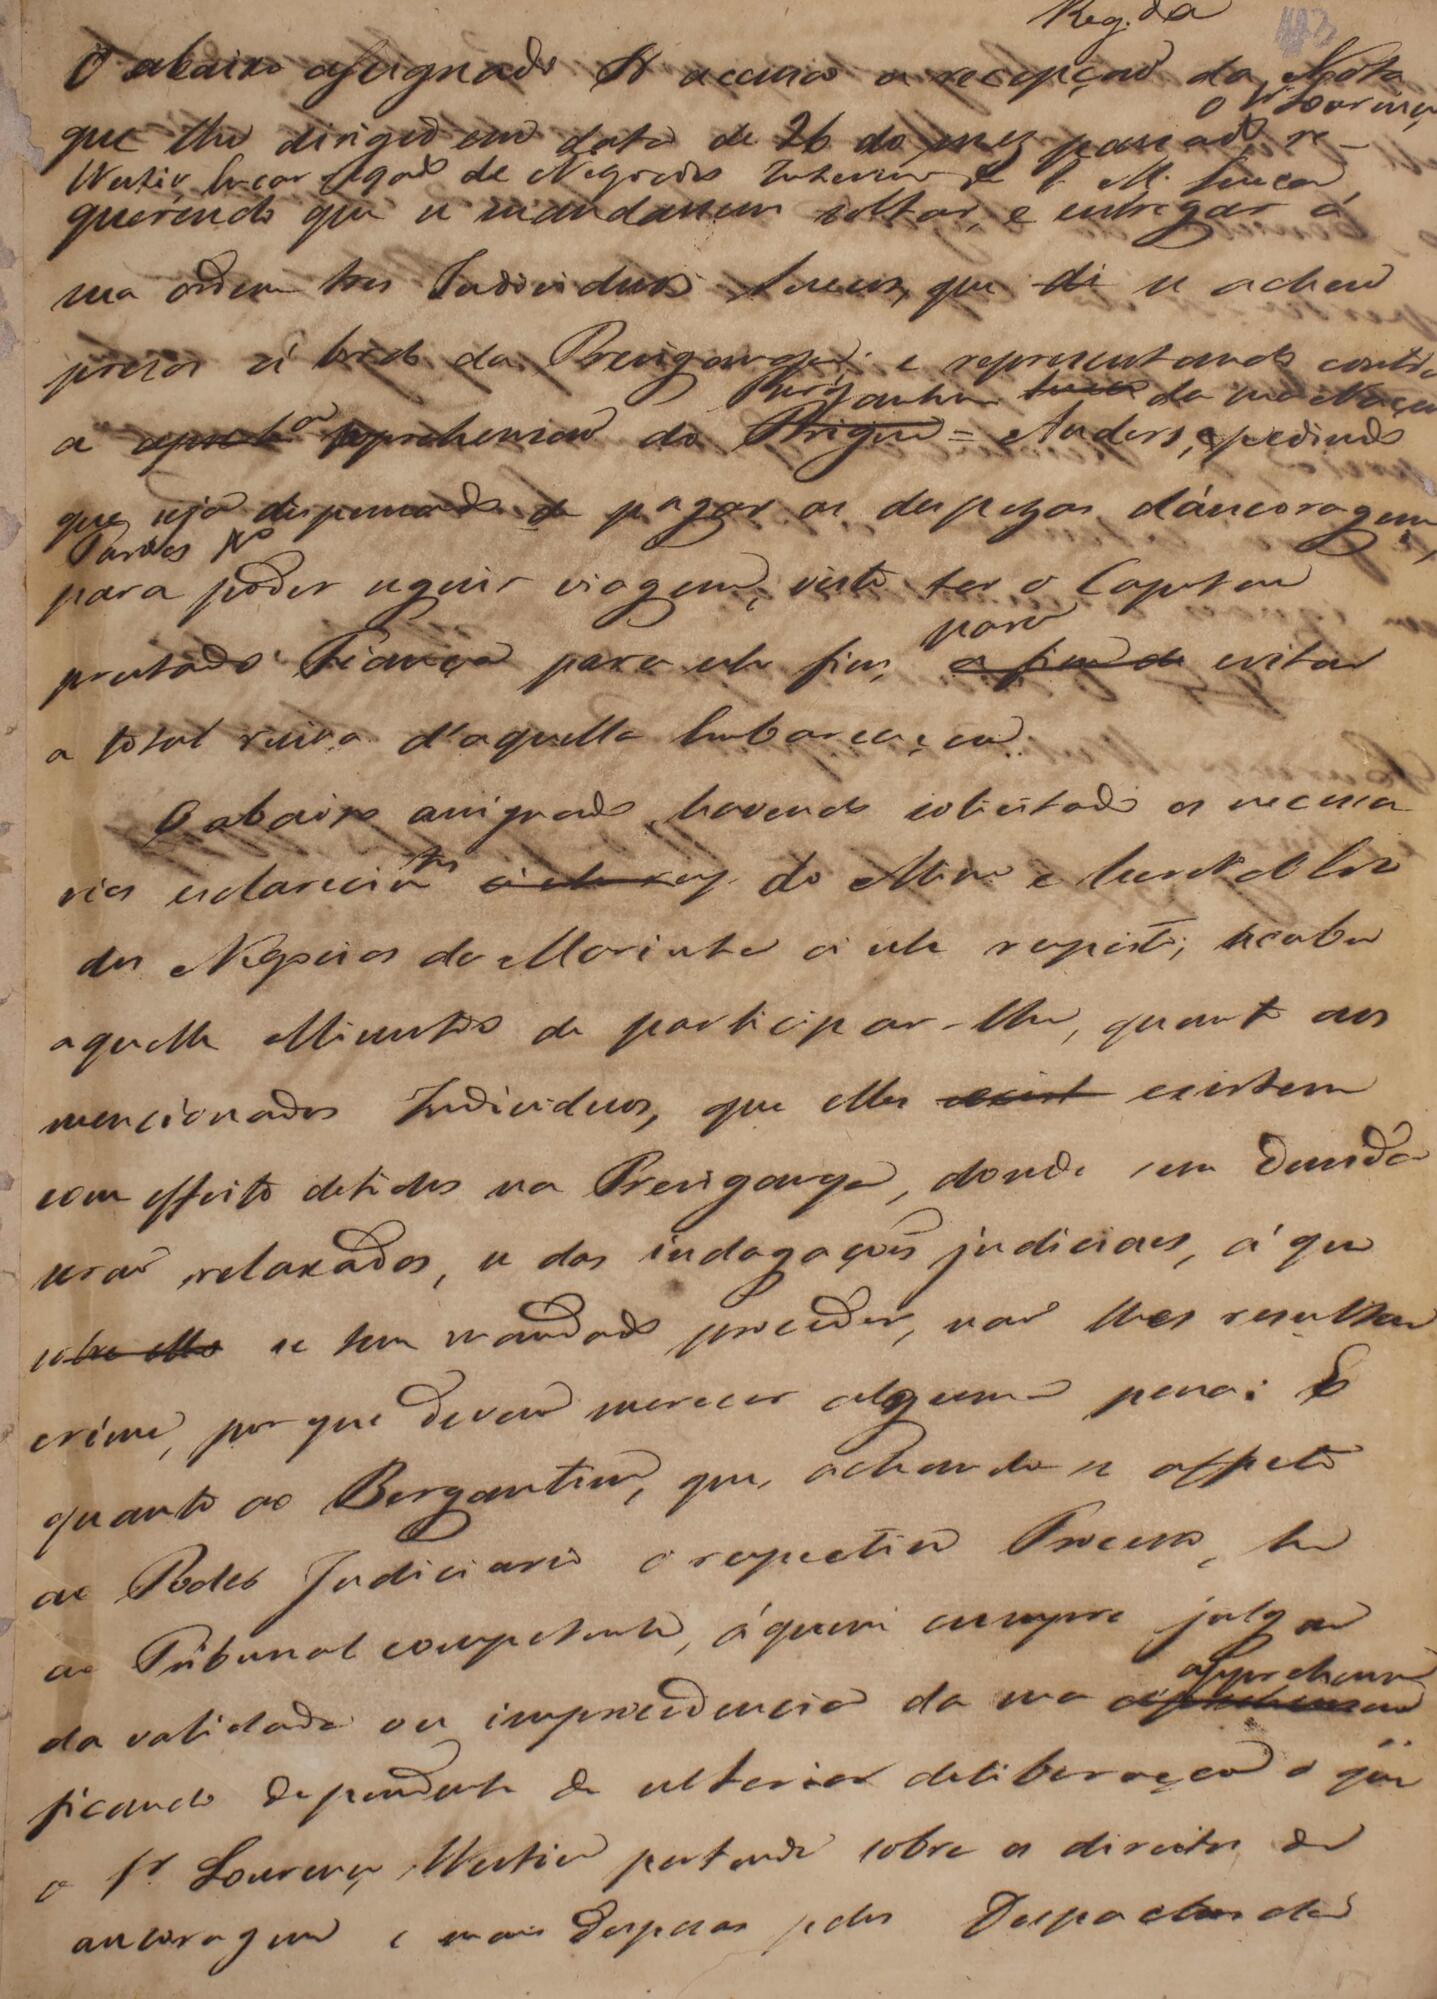 Reg.da
O abaixo assignado accusa a recepção da Nota
o Sr Lourenço
que lhe dirigio em data de 26 do mez passado, re-
Westin Encarregado de Negocios Interino de S. M. Sueca,
querendo que se mandassem soltar, e entregar á
sua ordem tres Individuos Suecos, que di se achão
prezos á bordo da Presiganga; e representando contra
Bergantim Sueco da sua Nação
a apreh apprehensão do Brigue = Anders, e pedindo
que seja dispensado de pagar as despezas d'ancoragem,
para poder seguir viagem, visto ter o Capitão
para
prestado Fiança para este fim, a fim de evitar
a total ruina d'aquella Embarcação.
O abaixo assignado, havendo solicitado os necessa
rios esclarecimtos do Mino e Secretro d'Estado
dos Negocios da Marinha a este respeito, acaba
aquelle Ministro de participar-lhe, quanto aos
mencionados Individuos, que elles exist existem
com effeito detidos na Presiganga, donde sem duvida
serão relaxados, se das indagações judiciaes, á que
sobre elles se tem mandado proceder, não lhes resultar
crime, por que devão merecer alguma pena: E
quanto ao Bergantim, que, achando-se affecto
ao Poder Judiciario o respectivo Processo, he
ao Tribunal competente, á quem cumpre julgar
apprehensão
da validade ou improcedencia da sua apprehensão
ficando dependente de ulterior deliberação o que
o Sr Lourenço Westin pertende sobre os direitos de
ancoragem e mais despezas pelos